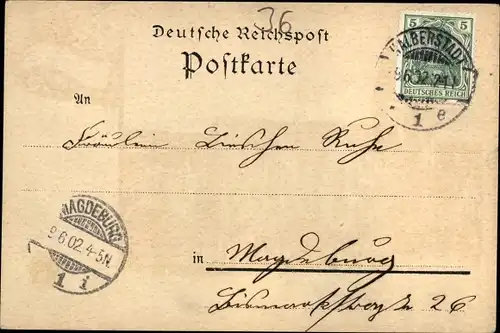 36
Deutsche Reichspost
Postkarte
5 5
DEUTSCHES REICH
HALBERSTADT
8.6.02.
1 e
An
Fräulein Lieschen Ruhe
MAGDEBURG
9.6.02.4-5N.
1 i
in Magdeburg
Bismarkstraße 26